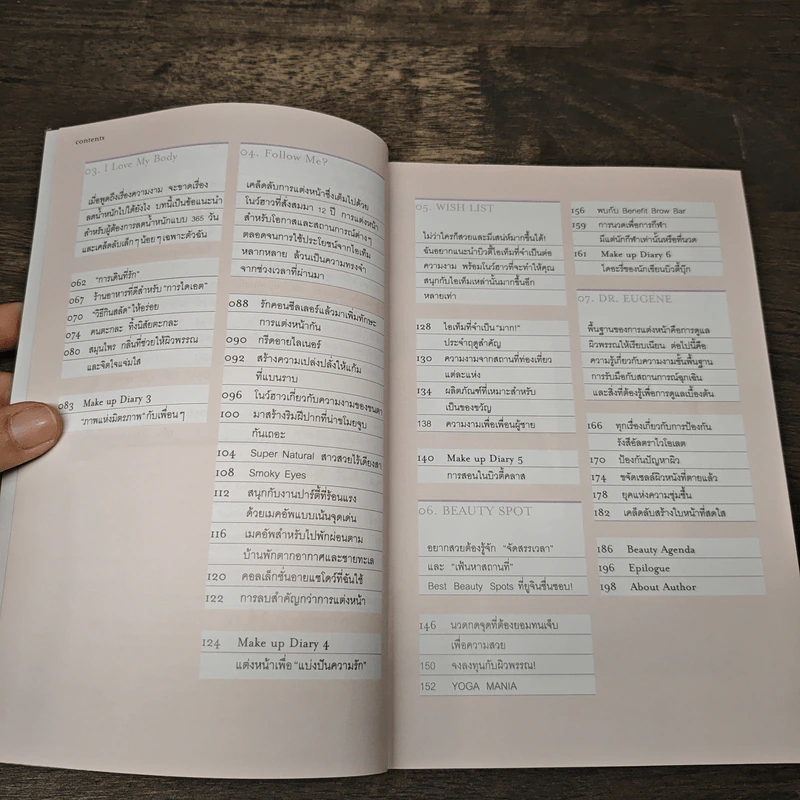 contents
03. I Love My Body
เมื่อพูดถึงเรื่องความงาม จะขาดเรื่อง
ลดน้ำหนักไปได้ยังไง บทนี้เป็นข้อแนะนำ
สำหรับผู้ต้องการลดน้ำหนักแบบ 365 วัน
และเคล็ดลับเล็กๆ น้อยๆ เฉพาะตัวฉัน
062 "การเดินที่รัก"
067 ร้านอาหารที่ดีสำหรับ "การไดเอต"
070 "วิธีกินสลัด" ให้อร่อย
074 คนตะกละ ทั้งนิสัยตะกละ
080 สมุนไพร กลิ่นที่ช่วยให้ผิวพรรณ
และจิตใจแจ่มใส
083 Make up Diary 3
"ภาพแห่งมิตรภาพ" กับเพื่อนๆ
04. Follow Me?
เคล็ดลับการแต่งหน้าซึ่งเต็มไปด้วย
โนว์ฮาวที่สั่งสมมา 12 ปี การแต่งหน้า
สำหรับโอกาสและสถานการณ์ต่างๆ
ตลอดจนการใช้ประโยชน์จากไอเท็ม
หลากหลาย ล้วนเป็นความทรงจำ
จากช่วงเวลาที่ผ่านมา
088 รักคอนซีลเลอร์แล้วมาเพิ่มทักษะ
การแต่งหน้ากัน
090 กรีดอายไลเนอร์
092 สร้างความเปล่งปลั่งให้แก้ม
ที่แบนราบ
096 โนว์ฮาวเกี่ยวกับความงามของขนตา
100 มาสร้างริมฝีปากที่น่าขโมยจูบ
กันเถอะ
104 Super Natural สาวสวยไร้เดียงสา
108 Smoky Eyes
112 สนุกกับงานปาร์ตี้ที่ร้อนแรง
ด้วยเมคอัพแบบเน้นจุดเด่น
116 เมคอัพสำหรับไปพักผ่อนตาม
บ้านพักตากอากาศและชายทะเล
120 คอลเล็กชั่นอายแชโดว์ที่ฉันใช้
122 การลบสำคัญกว่าการแต่งหน้า
124 Make up Diary 4
แต่งหน้าเพื่อ "แบ่งปันความรัก"
05. WISH LIST
ไม่ว่าใครก็สวยและมีเสน่ห์มากขึ้นได้!
ฉันอยากแนะนำบิวตี้ไอเท็มที่จำเป็นต่อ
ความงาม พร้อมโนว์ฮาวที่จะทำให้คุณ
สนุกกับไอเท็มเหล่านั้นมากขึ้นอีก
หลายเท่า
128 ไอเท็มที่จำเป็น "มาก!"
ประจำฤดูสำคัญ
130 ความงามจากสถานที่ท่องเที่ยว
แต่ละแห่ง
134 ผลิตภัณฑ์ที่เหมาะสำหรับ
เป็นของขวัญ
138 ความงามเพื่อเพื่อนผู้ชาย
140 Make up Diary 5
การสอนในบิวตี้คลาส
06. BEAUTY SPOT
อยากสวยต้องรู้จัก "จัดสรรเวลา"
และ "เฟ้นหาสถานที่"
Best Beauty Spots ที่ยูจินชื่นชอบ!
146 นวดกดจุดที่ต้องยอมทนเจ็บ
เพื่อความสวย
150 จงลงทุนกับผิวพรรณ!
152 YOGA MANIA
156 พบกับ Benefit Brow Bar
159 การนวดเพื่อการกีฬา
มีแต่นักกีฬาเท่านั้นหรือที่นวด
161 Make up Diary 6
ไดอะรี่ของนักเขียนบิวตี้บุ๊ก
07. DR. EUGENE
พื้นฐานของการแต่งหน้าคือการดูแล
ผิวพรรณให้เรียบเนียน ต่อไปนี้คือ
ความรู้เกี่ยวกับความงามขั้นพื้นฐาน
การรับมือกับสถานการณ์ฉุกเฉิน
และสิ่งที่ต้องรู้เพื่อการดูแลเบื้องต้น
166 ทุกเรื่องเกี่ยวกับการป้องกัน
รังสีอัลตราไวโอเลต
170 ป้องกันปัญหาผิว
174 ขจัดเซลล์ผิวหนังที่ตายแล้ว
178 ยุคแห่งความชุ่มชื้น
182 เคล็ดลับสร้างใบหน้าที่สดใส
186 Beauty Agenda
196 Epilogue
198 About Author